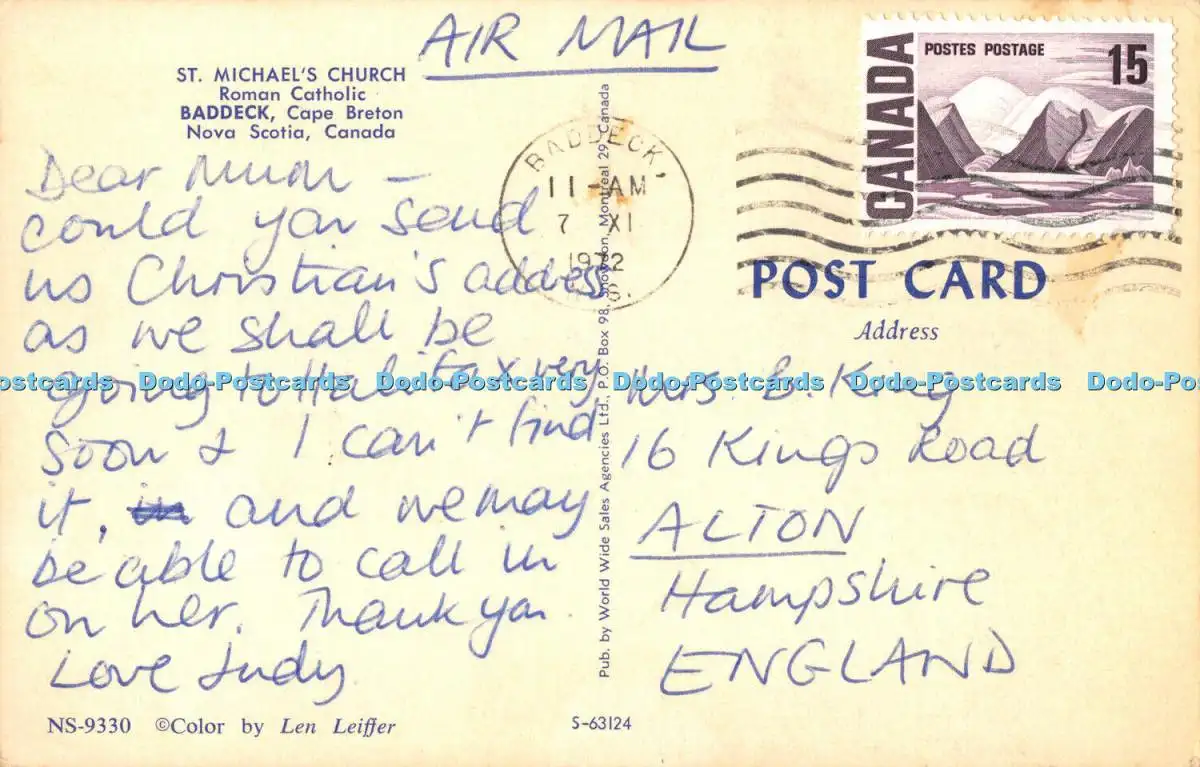 AIR MAIL
ST. MICHAEL'S CHURCH
Roman Catholic
BADDECK, Cape Breton
Nova Scotia, Canada
Dear Mum –
could you send
us Christian's address
as we shall be
going to Halifax very
soon & I can't find
it, and we may
be able to call in
on her. Thank you.
Love Judy
NS-9330 ©Color by Len Leiffer
Pub. by World Wide Sales Agencies Ltd., P.O. Box 98, Snowdon, Montreal 29, Canada
S-63124
BADDECK
11-AM
7 XI
1972
N.S.
CANADA
POSTES POSTAGE
15
POST CARD
Address
Mrs. B. King
16 Kings Road
ALTON
Hampshire
ENGLAND
Dodo-Postcards Dodo-Postcards Dodo-Postcards Dodo-Postcards